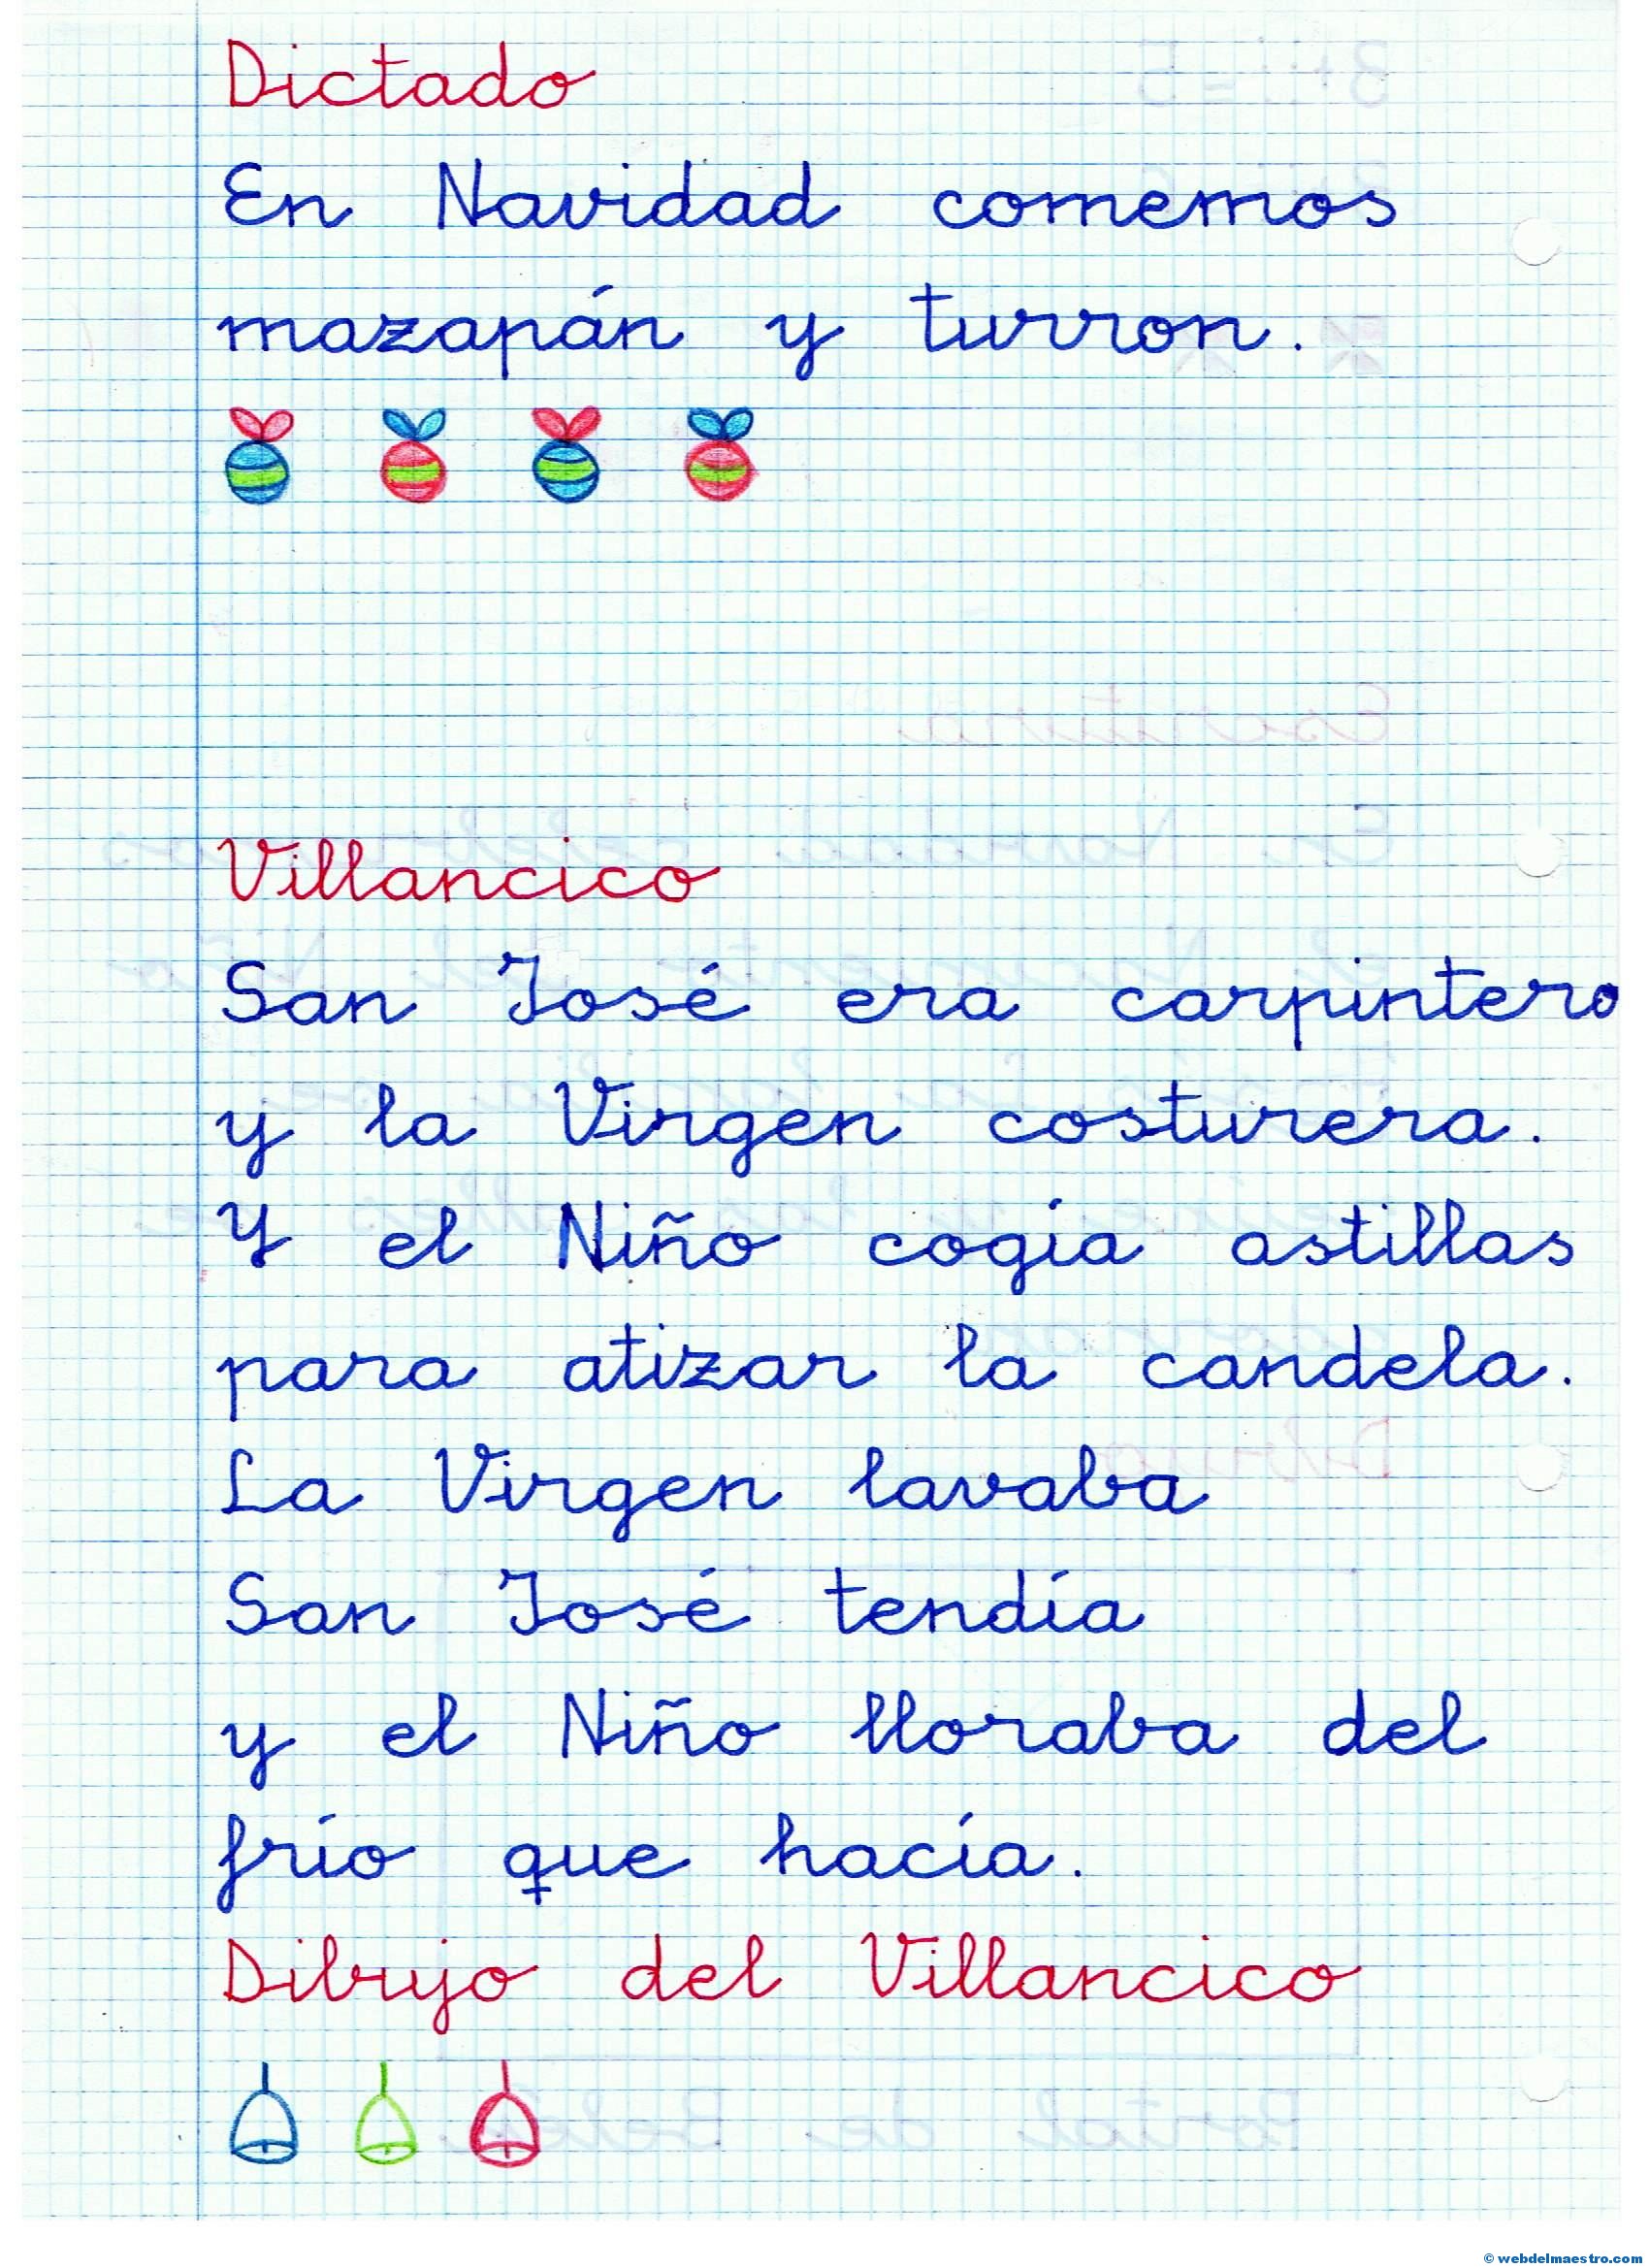 Dictado
En Navidad comemos
mazapán y turron.
Villancico
San José era carpintero
y la Virgen costurera.
Y el Niño cogía astillas
para atizar la candela.
La Virgen lavaba
San José tendía
y el Niño lloraba del
frío que hacía.
Dibujo del Villancico
© webdelmaestro.com